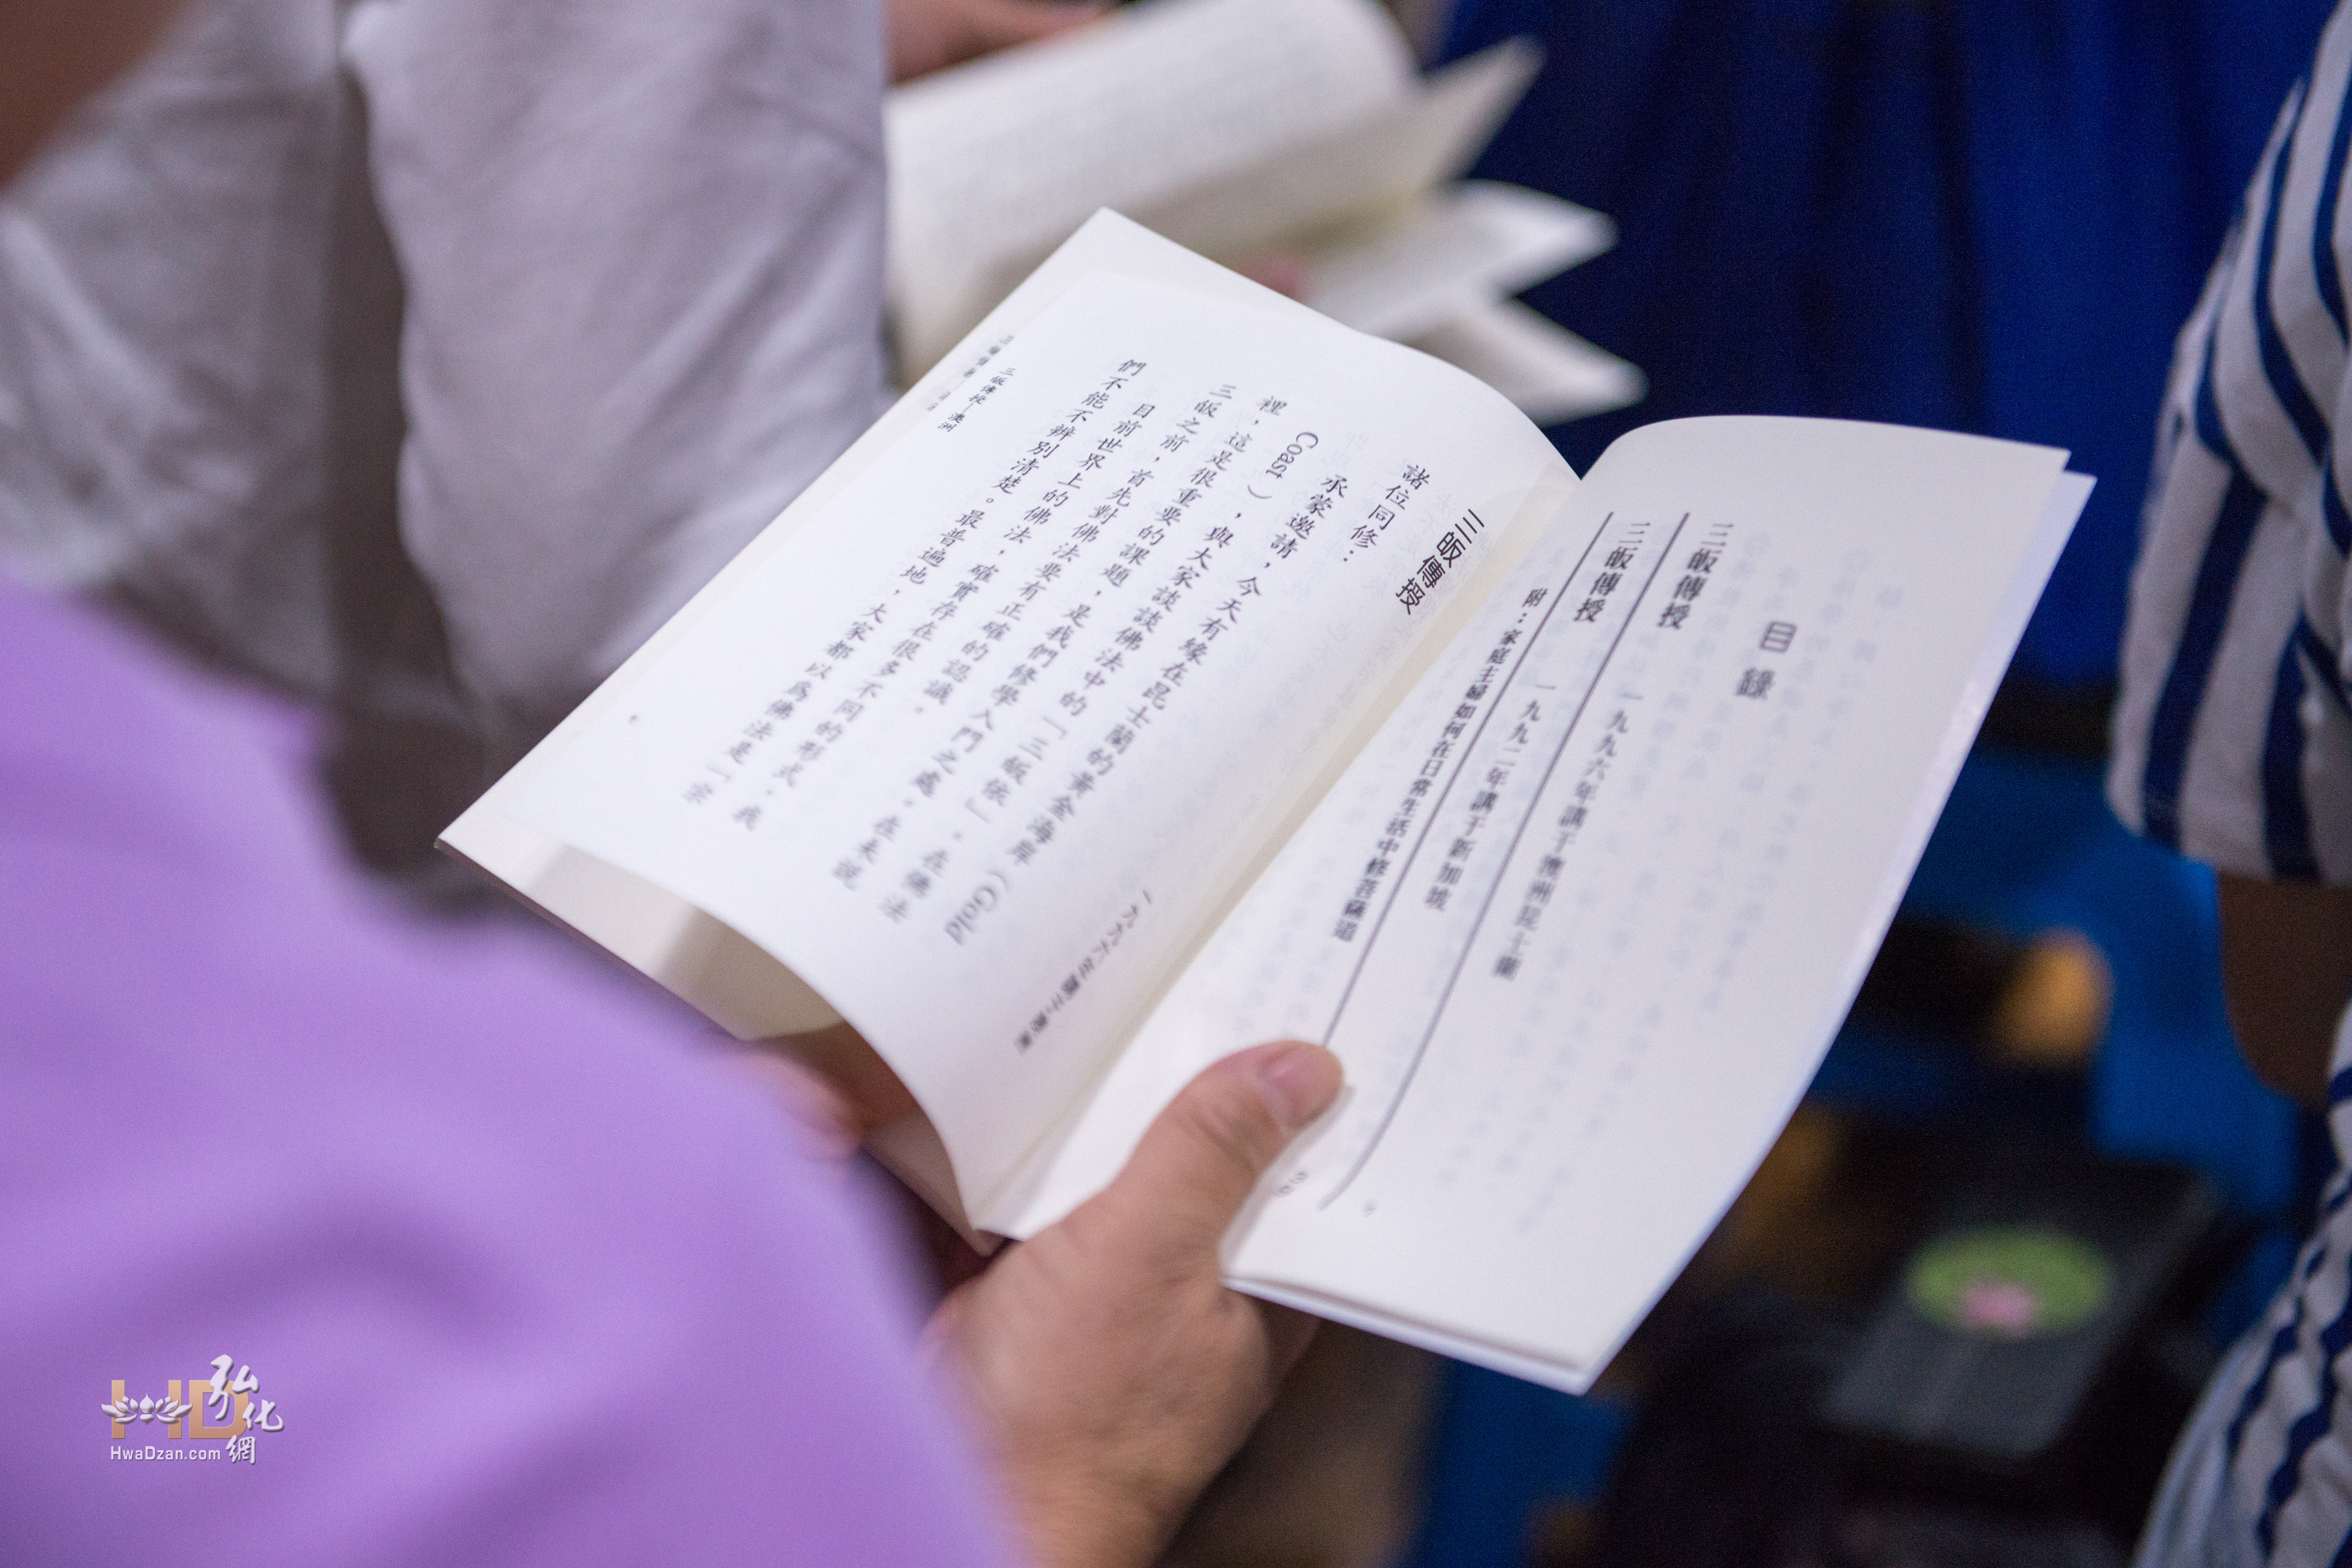 目錄
三皈傳授 一九九六年講于澳洲昆士蘭
三皈傳授 一九九二年講于新加坡
附：家庭主婦如何在日常生活中修菩薩道
29
三皈傳授
一九九六年
諸位同修：
承蒙邀請，今天有緣在昆士蘭的黃金海岸（Gold
Coast），與大家談談佛法中的「三皈依」。在傳法
裡，這是很重要的課題，是我們修學入門之處。在未說
三皈之前，首先對佛法要有正確的認識。
目前世界上的佛法，確實存在很多不同的形式，我
們不能不辨別清楚。最普遍地，大家都以為佛法是「宗
三皈傳授—澳洲
HD弘化網
HwaDzan.com